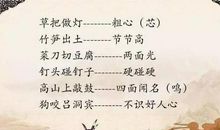 草把做灯--------粗心（芯）
竹笋出土--------节节高
菜刀切豆腐--------两面光
钉头碰钉子--------硬碰硬
高山上敲鼓--------四面闻名（鸣）
狗咬吕洞宾--------不识好人心